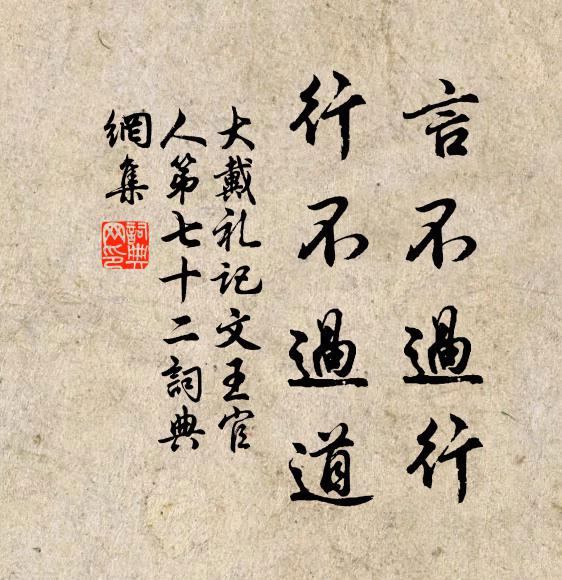 言不過行
行不過道
大戴礼记文王官
人第七十二詞典
網集
詞典
网印